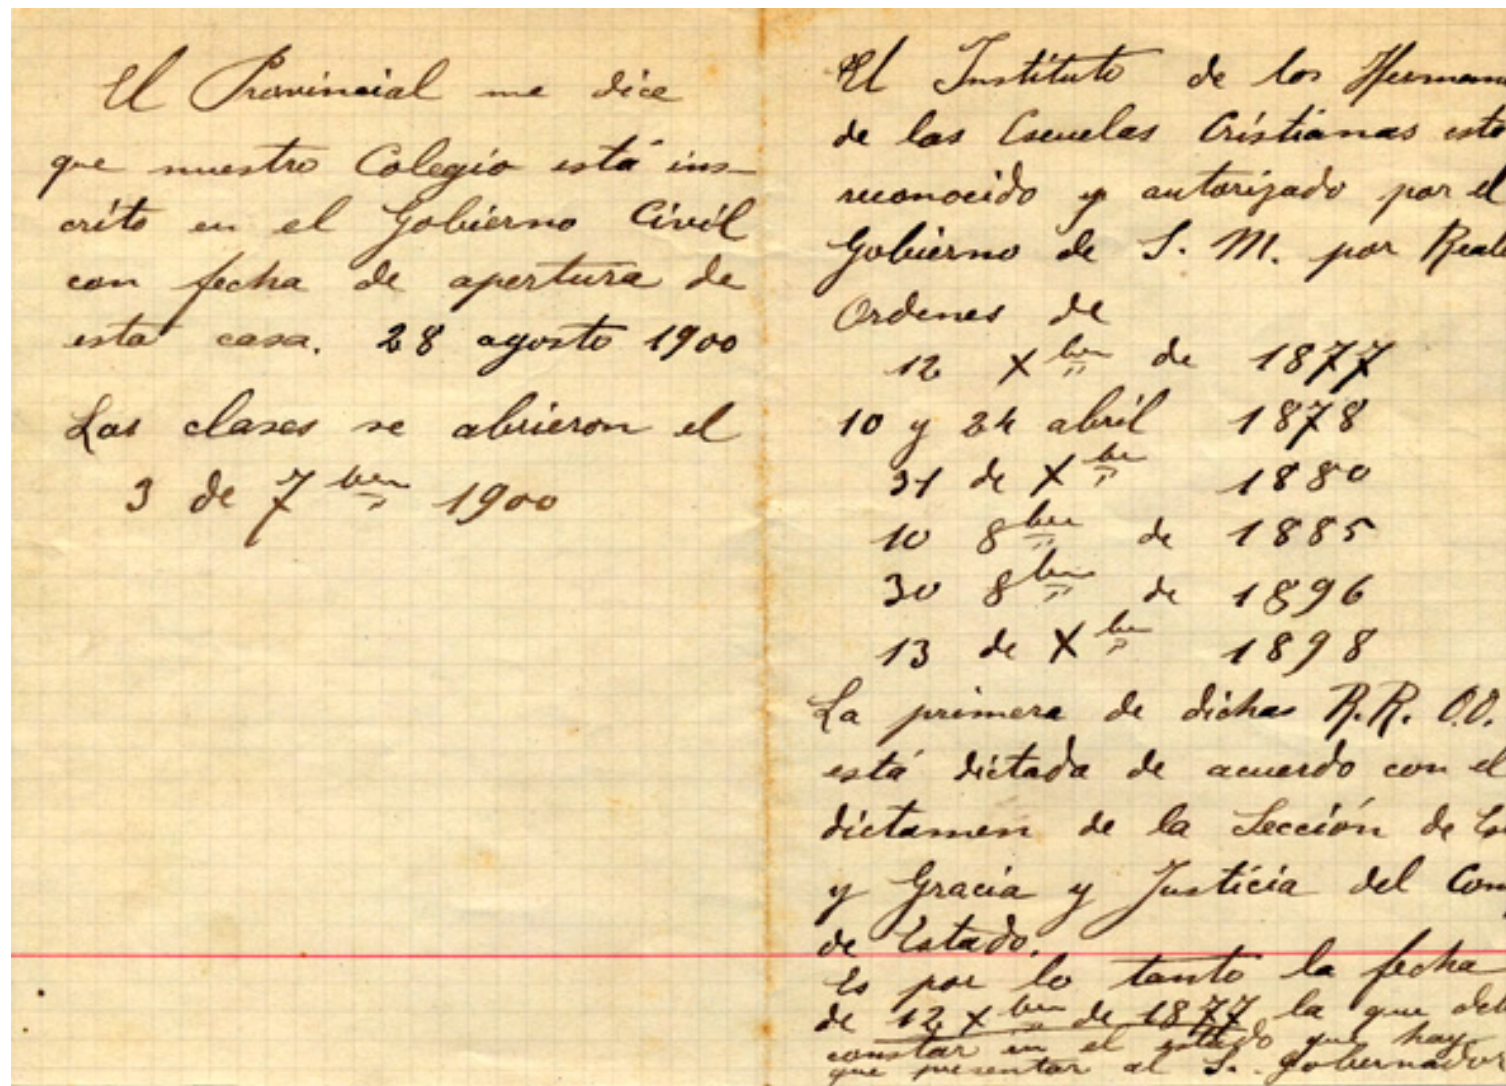 El Provincial me dice
que nuestro Colegio está ins-
crito en el Gobierno Civil
con fecha de apertura de
esta casa. 28 agosto 1900
Las clases se abrieron el
3 de 7bre 1900
El Instituto de los Herman
de las Escuelas Cristianas esta
reconocido y autorizado por el
Gobierno de S. M. por Reale
Ordenes de
12 Xbre de 1877
10 y 24 abril 1878
31 de Xbre 1880
10 8bre de 1885
30 8bre de 1896
13 de Xbre 1898
La primera de dichas R.R. O.O.
está dictada de acuerdo con el
dictamen de la Sección de Es
y Gracia y Justicia del Con
de Estado.
Es por lo tanto la fecha
de 12 Xbre de 1877 la que deb
constar en el estado que hay
que presentar al S. Gobernador